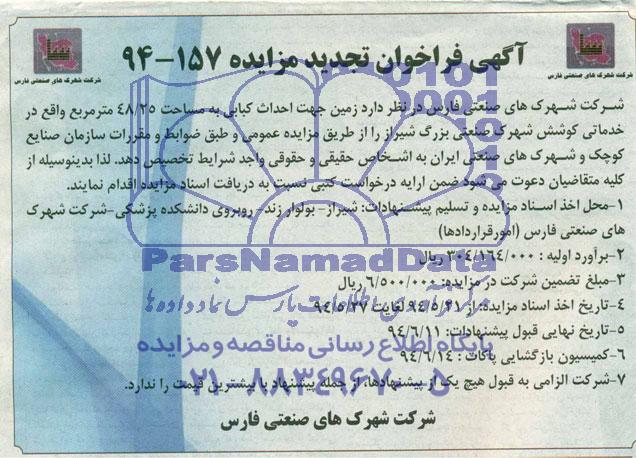 آگهی فراخوان تجدید مزایده ۱۵۷-۹۴
شرکت شهرک های صنعتی فارس
شرکت شهرک های صنعتی فارس
شرکت شهرک های صنعتی فارس در نظر دارد زمین جهت احداث کبابی به مساحت ۴۸/۲۵ مترمربع واقع در
خدماتی کوشش شهرک صنعتی بزرگ شیراز را از طریق مزایده عمومی و طبق ضوابط و مقررات سازمان صنایع
کوچک و شهرک های صنعتی ایران به اشخاص حقیقی و حقوقی واجد شرایط تخصیص دهد. لذا بدینوسیله از
کلیه متقاضیان دعوت می شود ضمن ارایه درخواست کتبی نسبت به دریافت اسناد مزایده اقدام نمایند.
۱-محل اخذ اسناد مزایده و تسلیم پیشنهادات: شیراز- بولوار زند- روبروی دانشکده پزشکی-شرکت شهرک
های صنعتی فارس (امورقراردادها)
۲-برآورد اولیه : ۳۰۴/۱۶۴/۰۰۰ ریال
۳-مبلغ تضمین شرکت در مزایده: ۶/۵۰۰/۰۰۰ ریال
۴-تاریخ اخذ اسناد مزایده: از ۹۴/۵/۲۱ لغایت ۹۴/۵/۲۷
۵-تاریخ نهایی قبول پیشنهادات: ۹۴/۶/۱۱
۶-کمیسیون بازگشایی پاکات : ۹۴/۶/۱۴
۷-شرکت الزامی به قبول هیچ یک از پیشنهادها، از جمله پیشنهاد با بیشترین قیمت را ندارد.
شرکت شهرک های صنعتی فارس
ParsNamadData
پایگاه اطلاع رسانی مناقصه و مزایده
۰۲۱-۸۸۳۴۹۶۷۰-۵